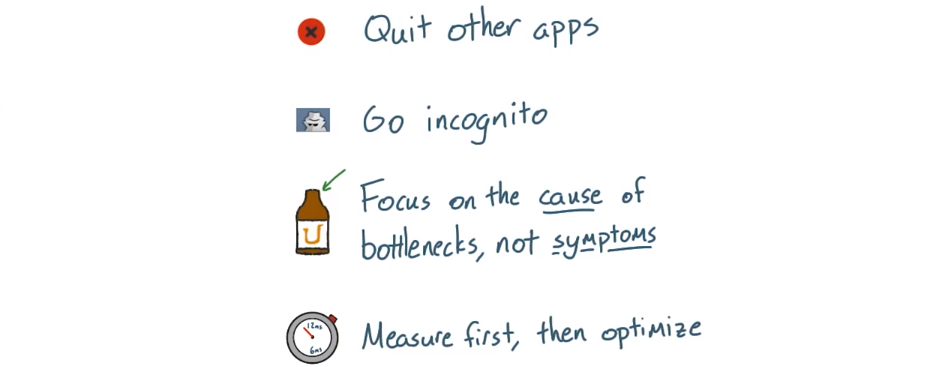 Quit other apps
Go incognito
U
Focus on the cause of
bottlenecks, not symptoms
12ms
6ms
Measure first, then optimize